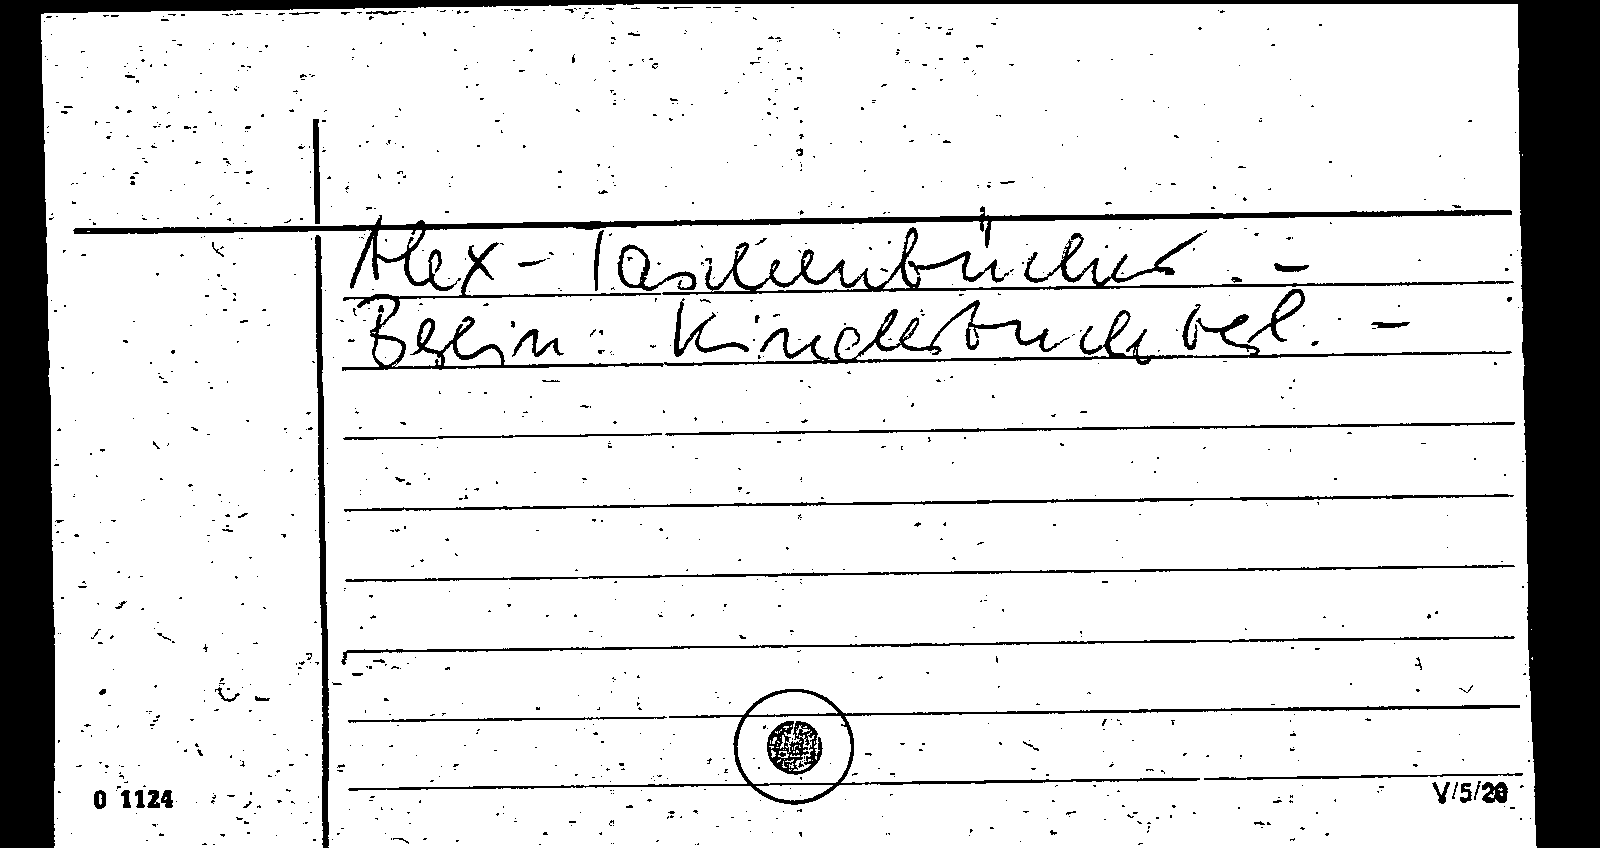 Alex-Taschenbücher. –
Berlin: Kinderbuchverl. –
0 1124
V/5/20